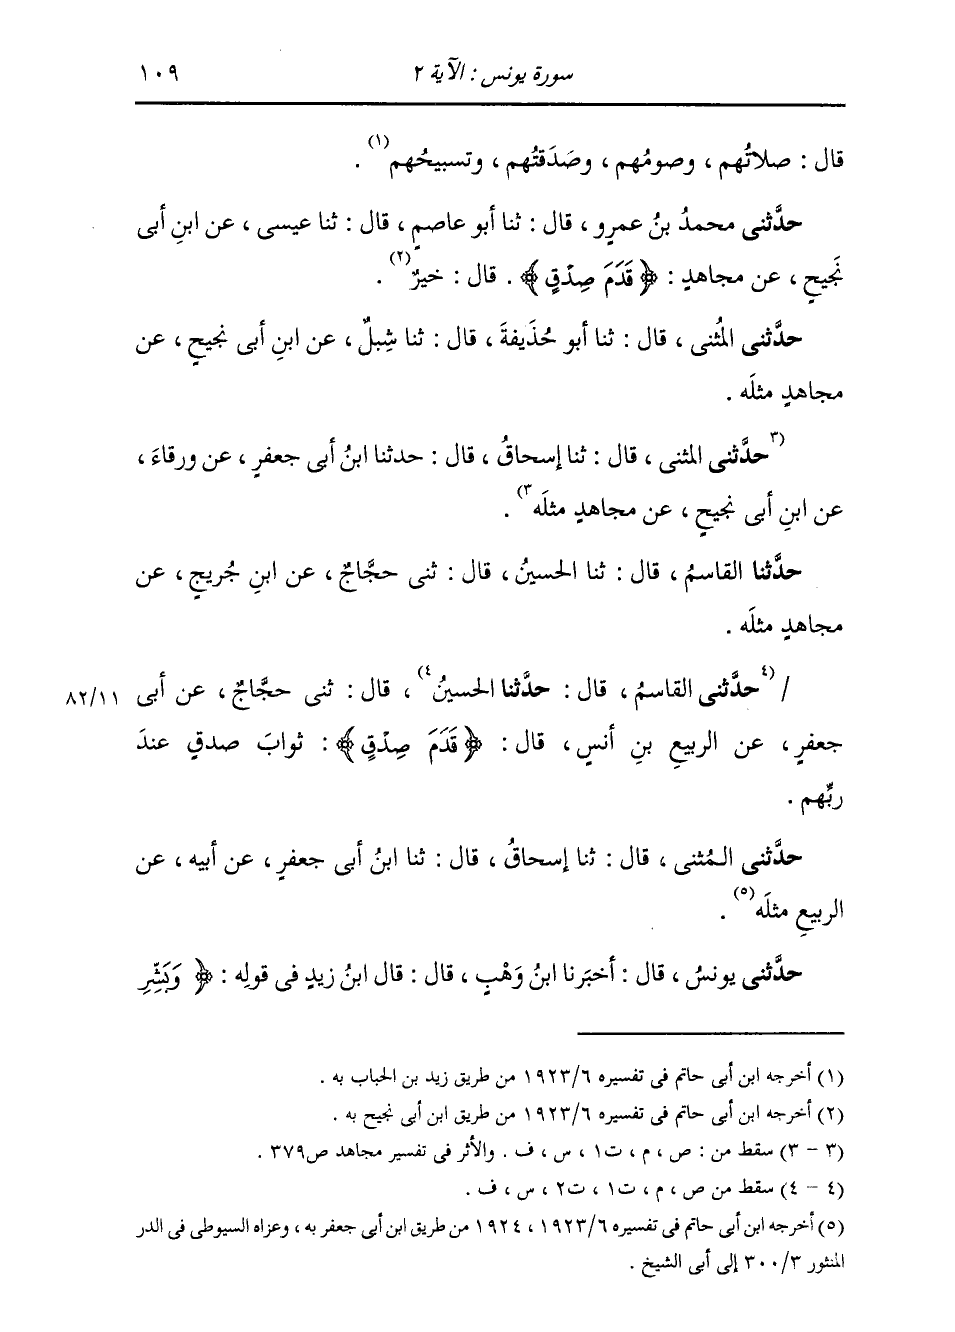 سورة يونس : الآية ٢ ١٠٩
قال : صلاتُهم ، وصومُهم ، وصَدَقتُهم ، وتسبيحُهم(١) .
حدَّثنى محمدُ بنُ عمرٍو ، قال : ثنا أبو عاصمٍ ، قال : ثنا عيسى ، عن ابنِ أبى
نَجيحٍ ، عن مجاهدٍ : ﴿ قَدَمَ صِدْقٍ ﴾ . قال : خيرٌ(٢) .
حدَّثنى المُثنى ، قال : ثنا أبو حُذَيفةَ ، قال : ثنا شِبلٌ ، عن ابنِ أبى نجيحٍ ، عن
مجاهدٍ مثلَه .
(٣حدَّثنى المثنى ، قال : ثنا إسحاقُ ، قال : حدثنا ابنُ أبى جعفرٍ ، عن ورقاءَ ،
عن ابنِ أبى نجيحٍ ، عن مجاهدٍ مثلَه٣) .
حدَّثنا القاسمُ ، قال : ثنا الحسينُ ، قال : ثنى حجَّاجٌ ، عن ابنِ جُريجٍ ، عن
مجاهدٍ مثلَه .
/ (٤حدَّثنى القاسمُ ، قال : حدَّثنا الحسينُ٤) ، قال : ثنى حجَّاجٌ ، عن أبى ٨٢/١١
جعفرٍ ، عن الربيعِ بنِ أنسٍ ، قال : ﴿ قَدَمَ صِدْقٍ ﴾ : ثوابَ صدقٍ عندَ
ربِّهم .
حدَّثنى المُثنى ، قال : ثنا إسحاقُ ، قال : ثنا ابنُ أبى جعفرٍ ، عن أبيه ، عن
الربيعِ مثلَه(٥) .
حدَّثنى يونسُ ، قال : أخبَرنا ابنُ وَهْبٍ ، قال : قال ابنُ زيدٍ فى قولِه : ﴿ وَبَشِّرِ
(١) أخرجه ابن أبى حاتم فى تفسيره ١٩٢٣/٦ من طريق زيد بن الحباب به .
(٢) أخرجه ابن أبى حاتم فى تفسيره ١٩٢٣/٦ من طريق ابن أبى نجيح به .
(٣ - ٣) سقط من : ص ، م ، ت١ ، س ، ف . والأثر فى تفسير مجاهد ص٣٧٩ .
(٤ - ٤) سقط من ص ، م ، ت١ ، ت٢ ، س ، ف .
(٥) أخرجه ابن أبى حاتم فى تفسيره ١٩٢٣/٦ ، ١٩٢٤ من طريق ابن أبى جعفر به ، وعزاه السيوطى فى الدر
المنثور ٣٠٠/٣ إلى أبى الشيخ .